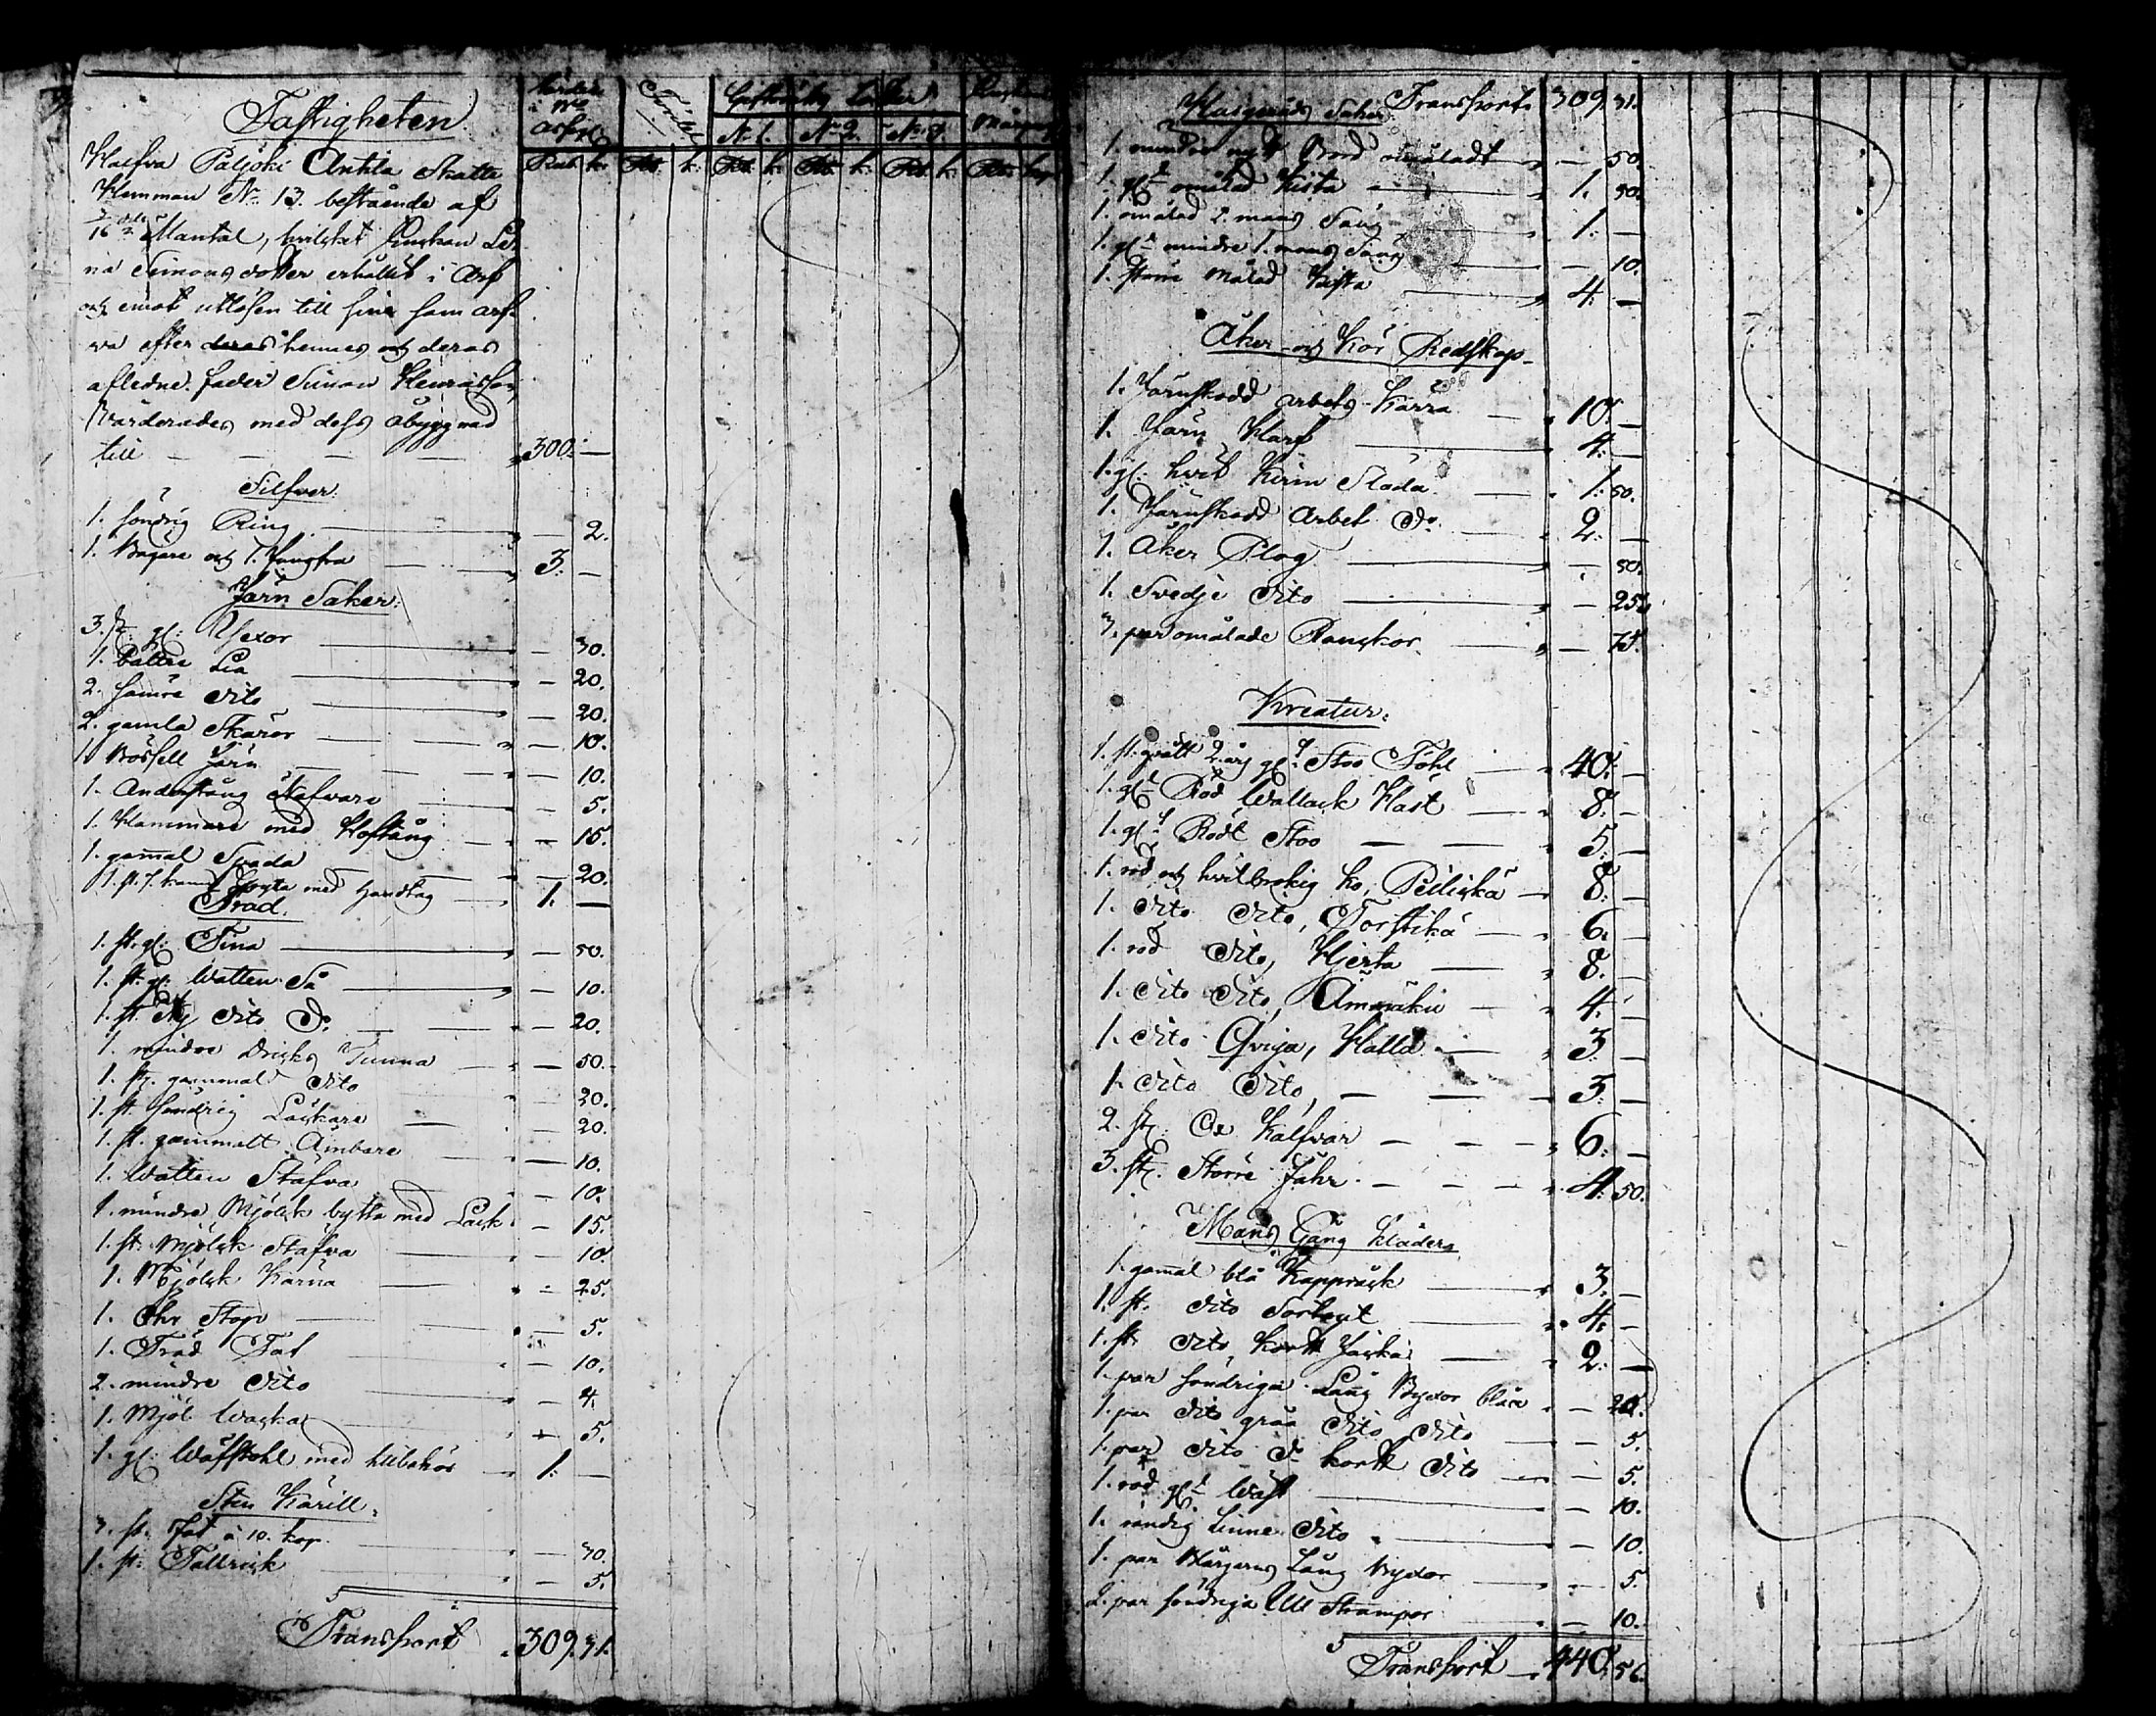 Fastigheten
Värde
Arfvet
Fördel
Giftorätts Lotter
Enkans
N: 1. N: 2. N: 3.
Rub. k. Rb. k: Rb. k: Rb. k: Rb. k: Rb. kop
Halfva Paljoki Anttila Skatte
Hemman No 13. bestående af
Mantal, hvilket Enkan Le-
na Simons dotter erhållit i Arf
och emot utlösen till sina sam arf-
va efter deras hennes och deras
aflidne fader Simon Henricsson,
Värderades med dess åbyggnad
till — — — — 300: —
Silfver.
1. söndrig Ring — 2.
1. Bägare och 1. 3: —
Järn Saker:
3. st: gl: Yxor — 30.
1. bättre Lia — 20.
2. sämre dito — 20.
2. gamla Skäror — 10.
1. Järn — 10.
1. — 5.
1. Hammare med Hoftång — 15.
1. gamal Spada — 20.
1. st. 7. kanns Gryta med Handtag 1. —
Träd.
1. st. gl: Tina — 50.
1. st. gl: Watten Så — 10.
1. st. Ny dito Do — 20.
1. mindre Dricks Tunna — 50.
1. st. gammal dito — 20.
1. st. söndrig — 20.
1. st. gammalt Ämbare — 10.
1. Watten Stäfva — 10.
1. mindre Mjölk bytta med Lock — 15.
1. st. Mjölk Stäfva — 10.
1. Mjölk Kärna — 25.
1. Stop — 5.
1. Träd Fat — 10.
2. mindre dito — 4.
1. Mjöl — 5.
1. gl: Wäfstohl med tilbehör 1: —
Sten Kärill:
3. st. fat à 10. kop. — 30.
1. st: Tallrick — 5.
Transport 309. 31.
Husgeråds Saker Transport 309. 31.
1. mindre nytt Bord omåladt — 50.
1. gl. omålad Kista 1. 50.
1. omålad 2. mans Säng 1: —
1. gl. mindre 1. mans Säng — 10.
1. större målad Kista 4: —
Åker och Kör Redskap
1. Järnskodd arbets Kärra 10: —
1. Järn Harf 4: —
1. gl: hvit Släda 1: 50.
1. Järnskodd Arbet Do 2: —
1. Åker Plog — 50.
1. Svedje dito — 25.
3. par omålade Rankor — 75.
Kreatur:
1. st. grått 2. årg gl. Stoo Föhl 40: —
1. gl. Röd Wallack Häst 8: —
1. gl. Rödt Stoo 5: —
1. röd och hvitbrokig ko, 8: —
1. dito dito, Torstikä 6: —
1. röd dito, Hjerta 8: —
1. dito dito, 4: —
1. dito Qviga, 3. —
1. dito dito, 3: —
2. st: Kalfvar 6: —
3. st: Större Fåhr 4: 50.
Mans Gång kläder
1. gamal blå Kapprock 3. —
1. st. dito Sortout 4: —
1. st. dito kortt Jacka 2: —
1. par söndriga Lång Byxor blåa — 20.
1. par dito gråa dito dito — 5.
1. par dito Do kortt dito — 5.
1. röd gl. Wäst — 10.
1. randig Linne dito — 10.
1. par Lång Byxor — 5.
2. par söndriga Ull Strumpor — 10.
Transport 440. 56.